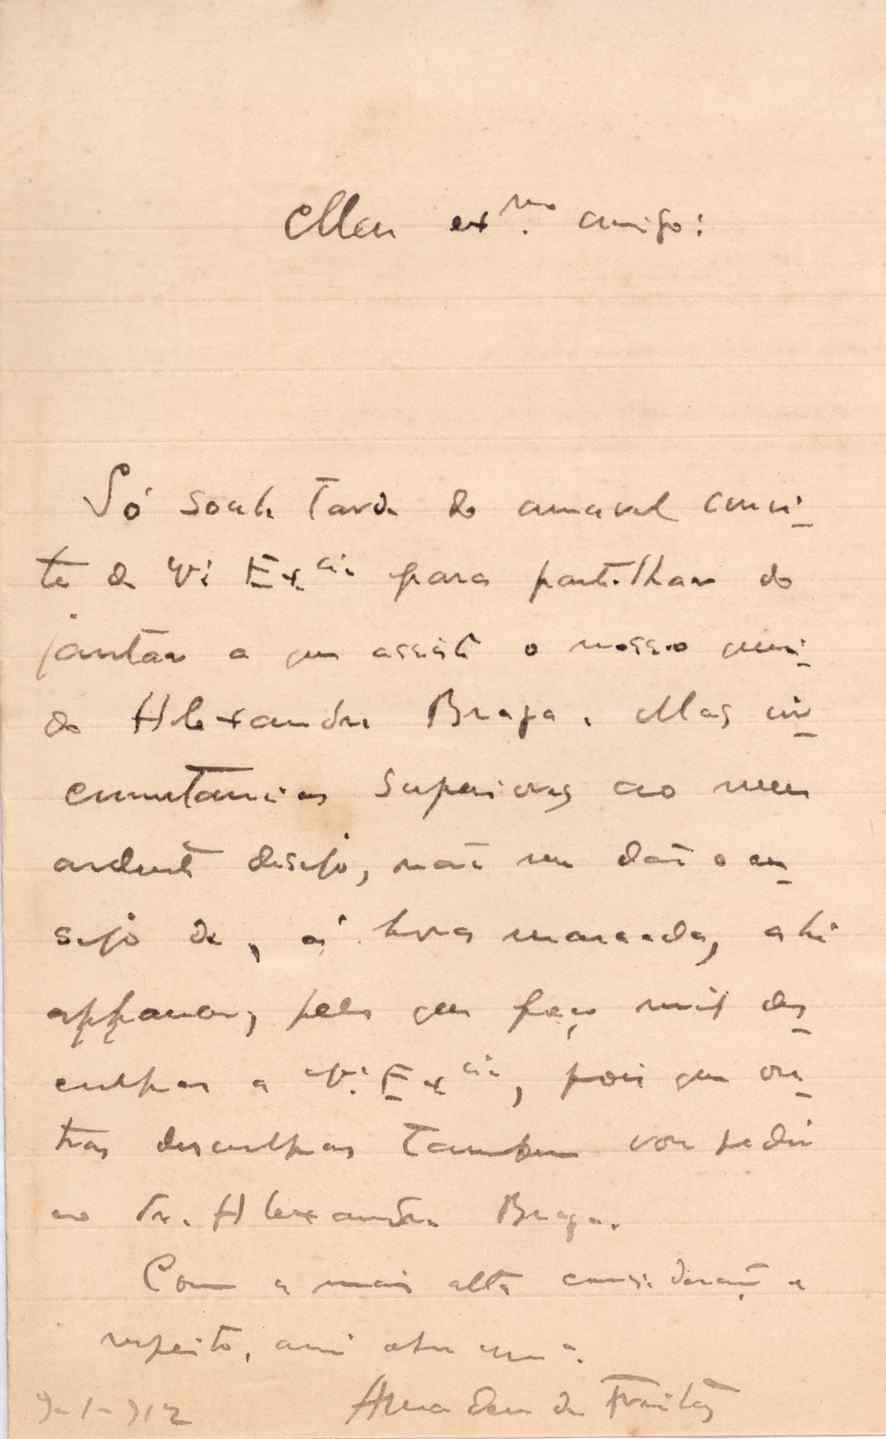 Meu ex.mo amigo:
Só soube tarde do amavel convi-
te de V.ª Ex.cia para partilhar do
jantar a que assiste o nosso queri-
do Alexandre Braga. Mas cir-
cunstancias superiores ao meu
ardente desejo, não me dão o en-
sejo de, á hora marcada, ahi
apparecer, pelo que peço mil des-
culpas a V.ª Ex.cia, pois que ou-
tras desculpas tambem vou pedir
ao Dr. Alexandre Braga.
Com a mais alta consideração e
respeito,
9-1-912 Amadeu de Freitas